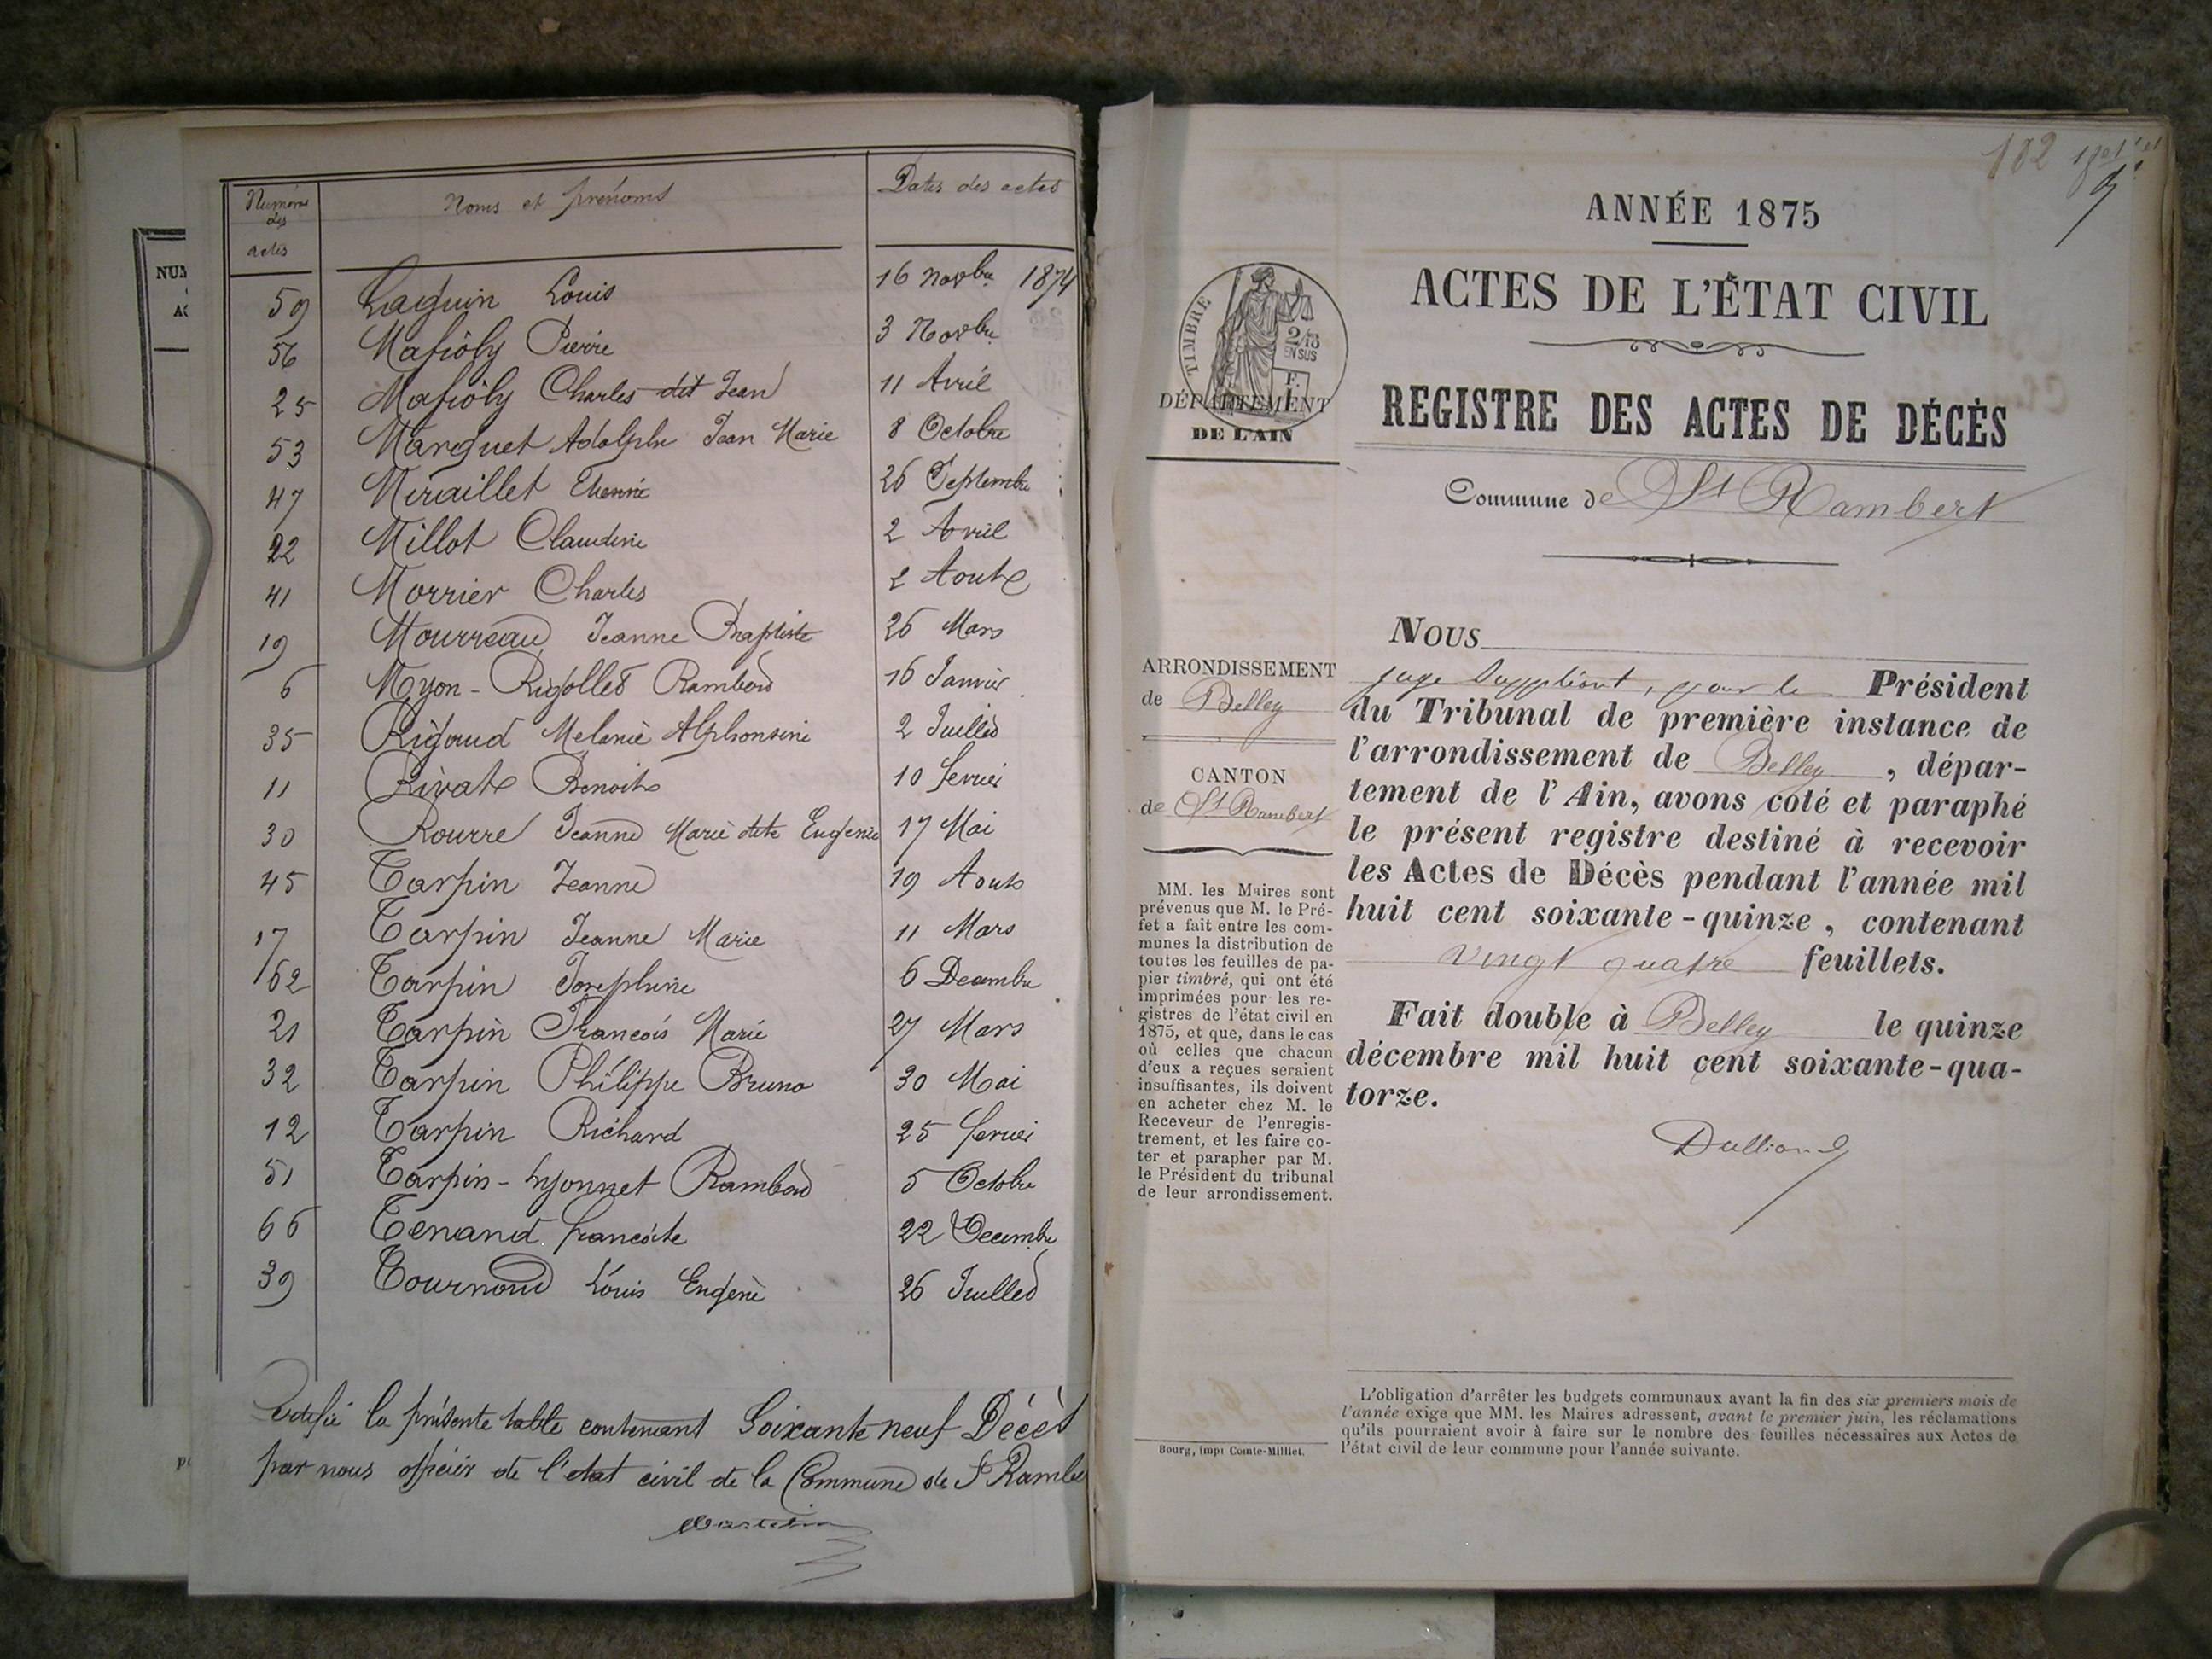 NUM
AC
Numéros des actes Noms et prénoms Dates des actes
59 Laguin Louis 16 Novbre 1874
56 Mafioly Pierre 3 Novbre
25 Mafioly Charles dit Jean 11 Avril
53 Marguet Adolphe Jean Marie 8 Octobre
47 Miraillet Etienne 26 Septembre
22 Millot Claudine 2 Avril
41 Morrier Charles 2 Aout
19 Mourreau Jeanne Baptiste 26 Mars
6 Myon - Rigollet Rambert 16 Janvier
35 Rigaud Melanie Alphonsine 2 Juillet
11 Rivat Benoit 10 fevrier
30 Rourre Jeanne Marie dite Eugenie 17 Mai
45 Tarpin Jeanne 19 Aout
17 Tarpin Jeanne Marie 11 Mars
62 Tarpin Josephine 6 Decembre
21 Tarpin Francois Marie 27 Mars
32 Tarpin Philippe Bruno 30 Mai
12 Tarpin Richard 25 fevrier
51 Tarpin - Lyonnet Rambert 5 Octobre
66 Tenand francoise 22 Decembre
39 Tournoud Louis Eugène 26 Juillet
Certifié la présente table contenant Soixante neuf Décès
par nous officier de l'etat civil de la Commune de St Rambe
182
ANNÉE 1875
ACTES DE L'ÉTAT CIVIL
REGISTRE DES ACTES DE DÉCÈS
Commune de St Rambert
TIMBRE
2/10
EN SUS
DÉPARTEMENT
DE L'AIN
ARRONDISSEMENT
de Belley
CANTON
de St Rambert
MM. les Maires sont
prévenus que M. le Pré-
fet a fait entre les com-
munes la distribution de
toutes les feuilles de pa-
pier timbré, qui ont été
imprimées pour les re-
gistres de l'état civil en
1875, et que, dans le cas
où celles que chacun
d'eux a reçues seraient
insuffisantes, ils doivent
en acheter chez M. le
Receveur de l'enregis-
trement, et les faire co-
ter et parapher par M.
le Président du tribunal
de leur arrondissement.
Bourg, impr Comte-Milliet.
NOUS
juge Suppléant, pour le Président
du Tribunal de première instance de
l'arrondissement de Belley, dépar-
tement de l'Ain, avons coté et paraphé
le présent registre destiné à recevoir
les Actes de Décès pendant l'année mil
huit cent soixante-quinze, contenant
vingt quatre feuillets.
Fait double à Belley le quinze
décembre mil huit cent soixante-qua-
torze.
L'obligation d'arrêter les budgets communaux avant la fin des six premiers mois de
l'année exige que MM. les Maires adressent, avant le premier juin, les réclamations
qu'ils pourraient avoir à faire sur le nombre des feuilles nécessaires aux Actes de
l'état civil de leur commune pour l'année suivante.